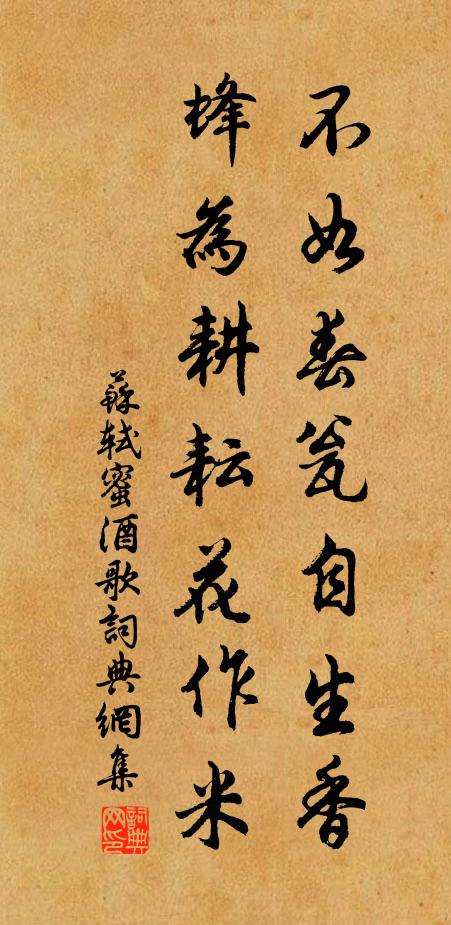 不如春瓮自生香
蜂為耕耘花作米
蘇軾蜜酒歌詞典網集
詞典網印